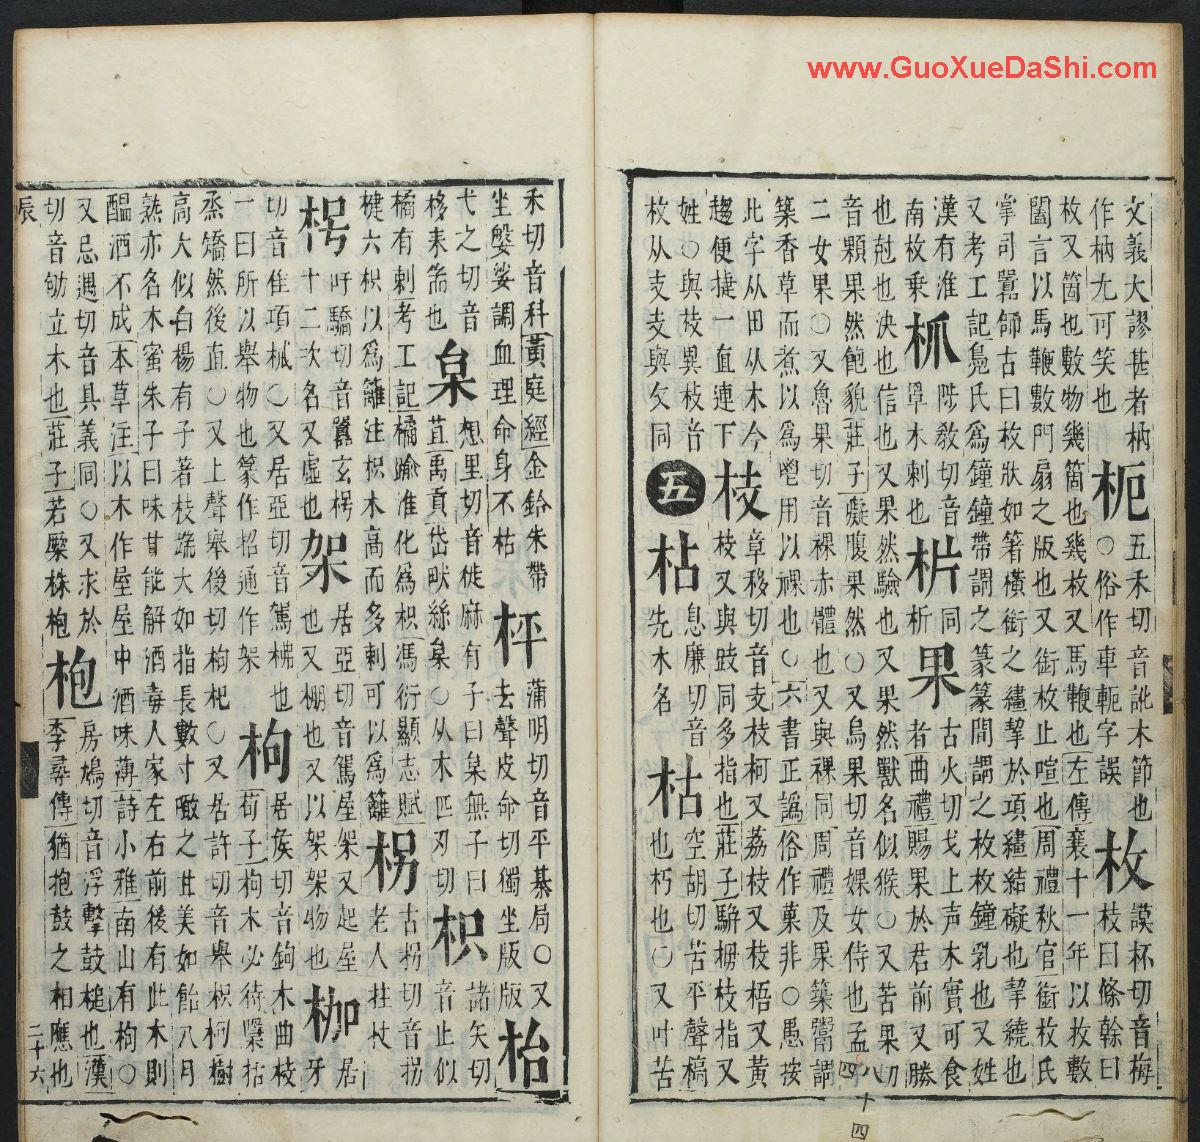 www.GuoXueDaShi.com
文義大謬甚者柄
作柄尢可笑也
枙
五禾切音訛木節也
○俗作車軛字誤
枚
謨杯切音梅
枝曰條幹曰
枚又箇也數物幾箇也幾枚又馬鞭也左傳襄十一年以枚數
闔言以馬鞭數門扇之版也又銜枚止喧也周禮秋官銜枚氏
掌司嚻師古曰枚狀如箸橫銜之繣挈於項繣結礙也挈繞也
又考工記鳧氏爲鐘鐘帶謂之篆篆間謂之枚枚鐘乳也又姓
漢有淮
南枚乗
枛
陟教切音
罩木刺也
枿
同
析
果
古火切戈上声木實可食
者曲禮賜果於君前又勝
也尅也決也信也又果然驗也又果然獸名似猴○又苦果切
音顆果然飽貌莊子癡腹果然○又烏果切音婐女侍也孟
二女果○又魯果切音裸赤體也又與裸同周禮及果築鬻謂
築香草而煮以爲鬯用以祼也○六書正譌俗作菓非○愚按
此字从田从木今
趨便捷一直連下
枝
章移切音支枝柯又荔枝又枝梧又黃
枝又與歧同多指也莊子駢拇枝指又
姓○與枝異枝音
枚从支支與攵同
五
枮
息廉切音
先木名
枯
空胡切苦平聲槁
也朽也○又叶苦
禾切音科黃庭經金鈴朱帶
坐槃娑調血理命身不枯
枰
蒲明切音平棊局○又
去聲皮命切獨坐版版
枲
想里切音徙麻有子曰枲無子曰
苴禹貢岱畎絲枲○从木四刃切
枳
諸矢切
音止似
橘有刺考工記橘踰淮化爲枳馮衍顯志賦
楗六枳以爲籬注枳木高而多刺可以爲籬
枴
古拐切音拐
老人拄杖
枵
吁驕切音嚻玄枵
十二次名又虛也
架
居亞切音駕屋架又起屋
也又棚也又以架架物也
枷
居
牙
切音佳項械○又居亞切音駕梻也
一曰所以舉物也篆作枱通作架
枸
居侯切音鉤木曲枝
荀子枸木必待檃栝
烝矯然後直○又上聲舉後切枸杞○又居許切音舉枳枸樹
高大似白楊有子著枝端大如指長數寸噉之甘美如飴八月
熟亦名木蜜朱子曰味甘能解酒毒人家左右前後有此木則
醖酒不成本草注以木作屋屋中酒味薄詩小雅南山有枸○
又忌遇切音具義同○又求於
切音劬立木也莊子若橜株枸
枹
房鳩切音浮擊鼓槌也漢
李尋傳猶抱鼓之相應也
辰
二十六
八
四
十
四